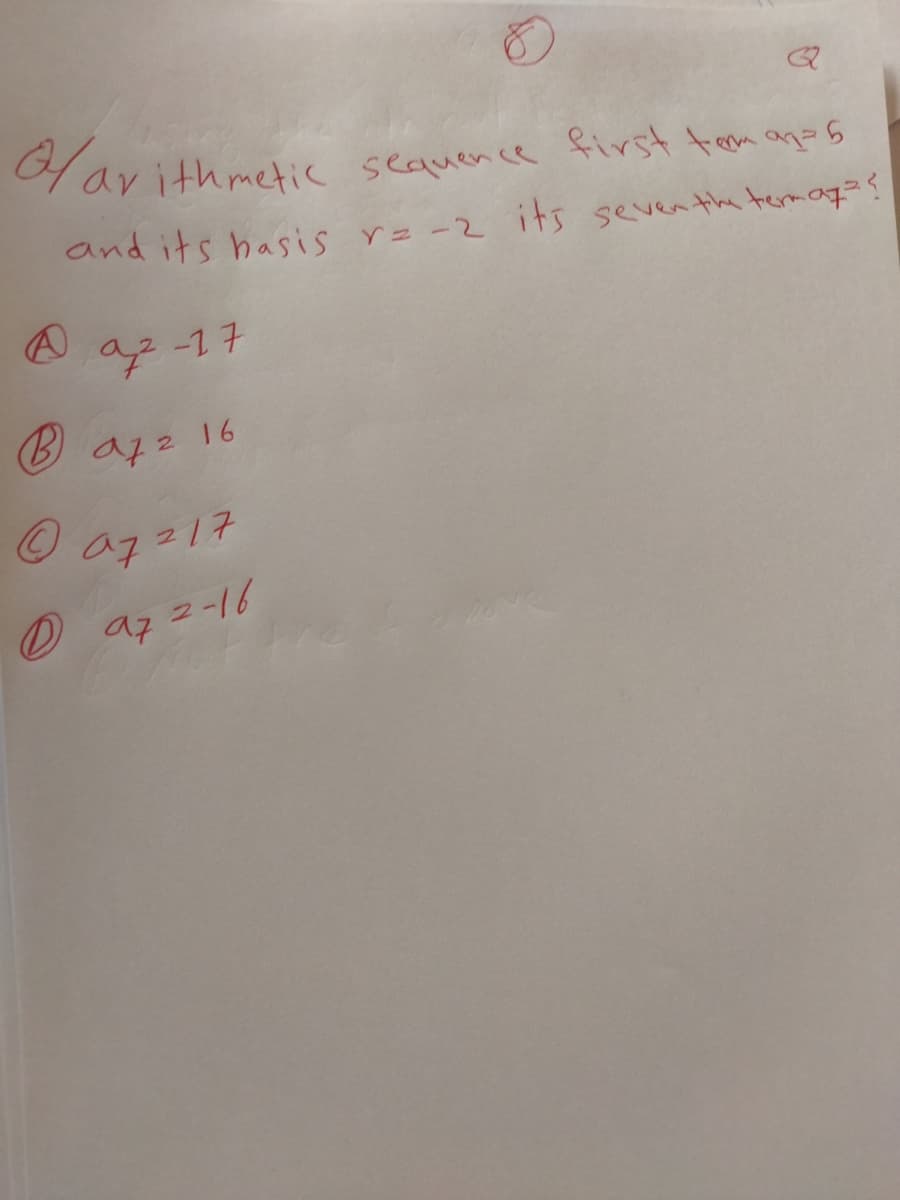 8
Q/ arithmetic sequence first term a1=5
and its basis r=-2 its seventh term a7=?
Ⓐ a7=-17
Ⓑ a7=16
Ⓒ a7=17
Ⓓ a7=-16